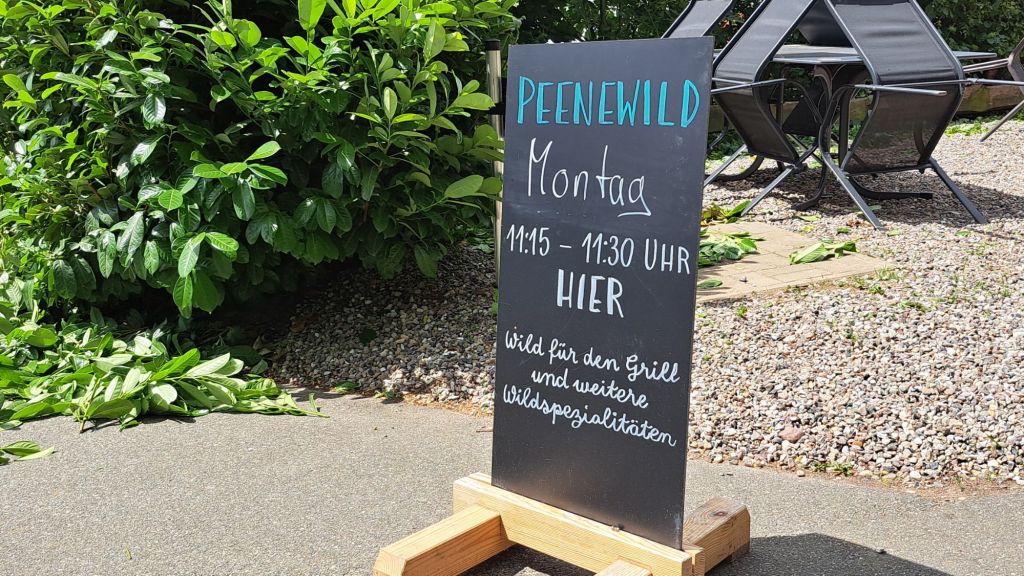 PEENEWILD
Montag
11:15 - 11:30 UHR
HIER
Wild für den Grill
und weitere
Wildspezialitäten